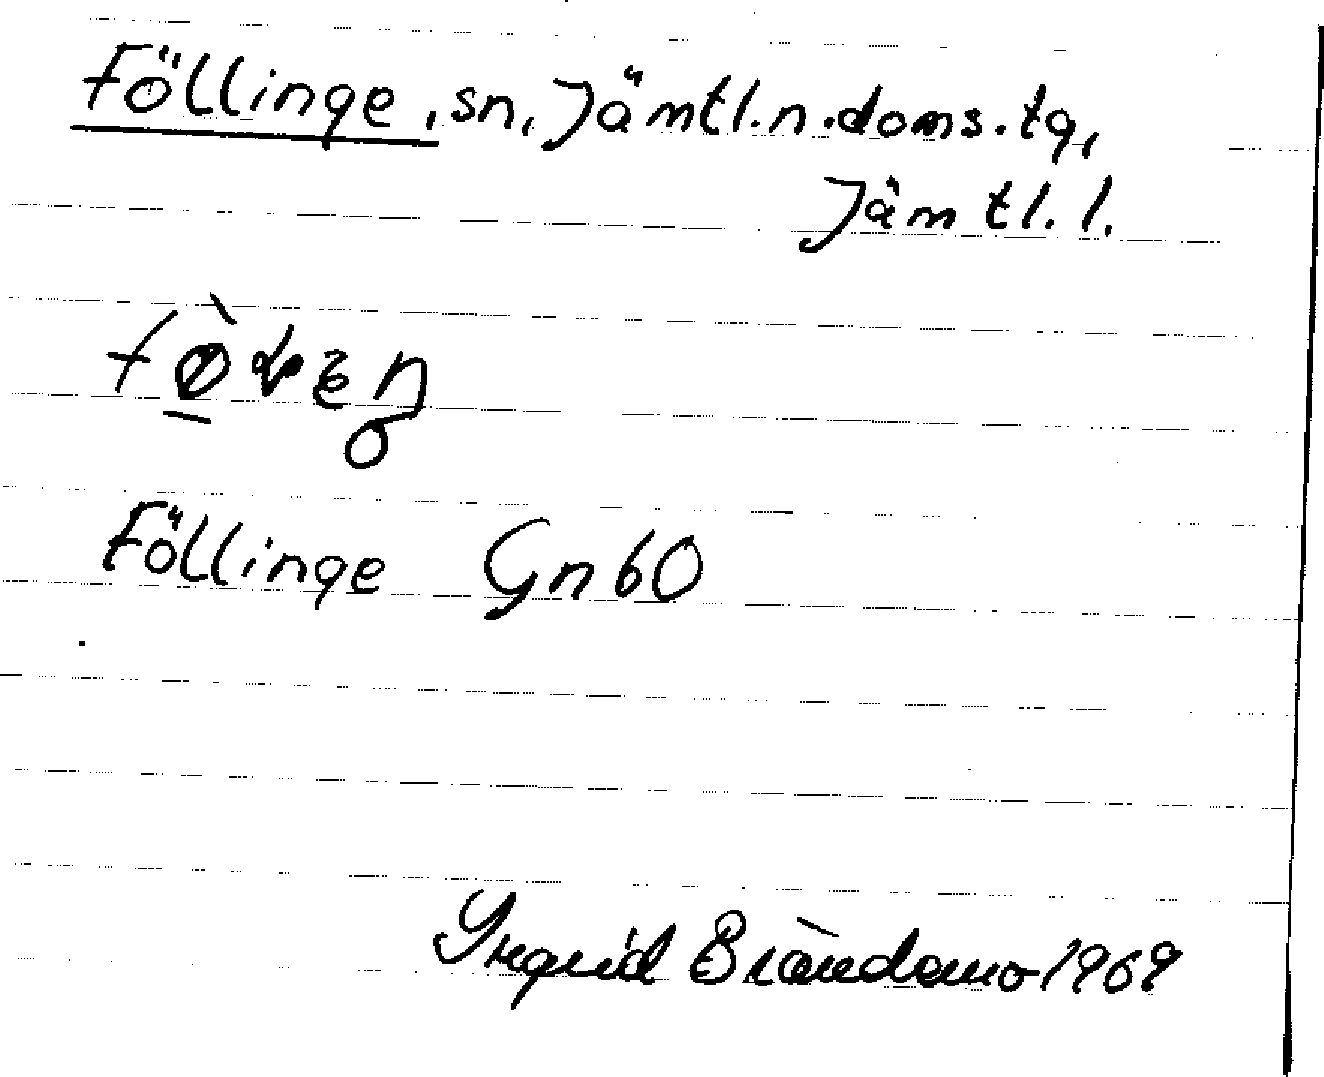 Föllinge, sn, Jämtl.n.doms.tg,
Jämtl. l.
Föllinge Gn 60
Ingrid Brändemo 1969